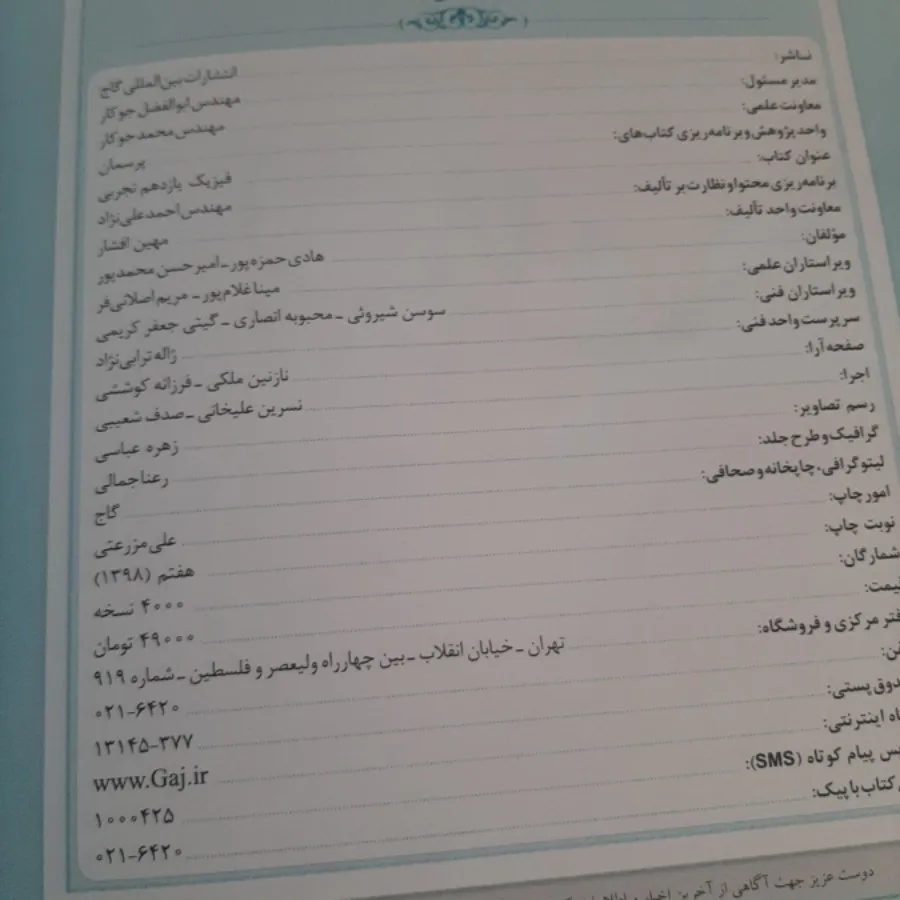 ناشر: انتشارات بین‌المللی گاج
مدیر مسئول: مهندس ابوالفضل جوکار
معاونت علمی: مهندس محمد جوکار
واحد پژوهش و برنامه‌ریزی کتاب‌های: پرسمان
عنوان کتاب: فیزیک یازدهم تجربی
برنامه‌ریزی محتوا و نظارت بر تألیف: مهندس احمد علی‌نژاد
معاونت واحد تألیف: مهین افشار
مؤلفان: هادی حمزه‌پور ـ امیرحسن محمدپور
ویراستاران علمی: مینا غلام‌پور ـ مریم اصلانی‌فر
ویراستاران فنی: سوسن شیروئی ـ محبوبه انصاری ـ گیتی جعفر کریمی
سرپرست واحد فنی: ژاله ترابی‌نژاد
صفحه‌آرا: نازنین ملکی ـ فرزانه کوششی
اجرا: نسرین علیخانی ـ صدف شعیبی
رسم تصاویر: زهره عباسی
گرافیک و طرح جلد: رعنا جمالی
لیتوگرافی، چاپخانه و صحافی: گاج
امور چاپ: علی مزرعتی
نوبت چاپ: هفتم (۱۳۹۸)
شمارگان: ۴۰۰۰ نسخه
قیمت: ۴۹۰۰۰ تومان
فتر مرکزی و فروشگاه: تهران ـ خیابان انقلاب ـ بین چهارراه ولیعصر و فلسطین ـ شماره ۹۱۹
فن: ۰۲۱-۶۴۲۰
دوق پستی: ۱۳۱۴۵-۳۷۷
اه اینترنتی: www.Gaj.ir
س پیام کوتاه (SMS): ۱۰۰۰۴۲۵
کتاب با پیک: ۰۲۱-۶۴۲۰
دوست عزیز جهت آگاهی از آخرین اخبار و